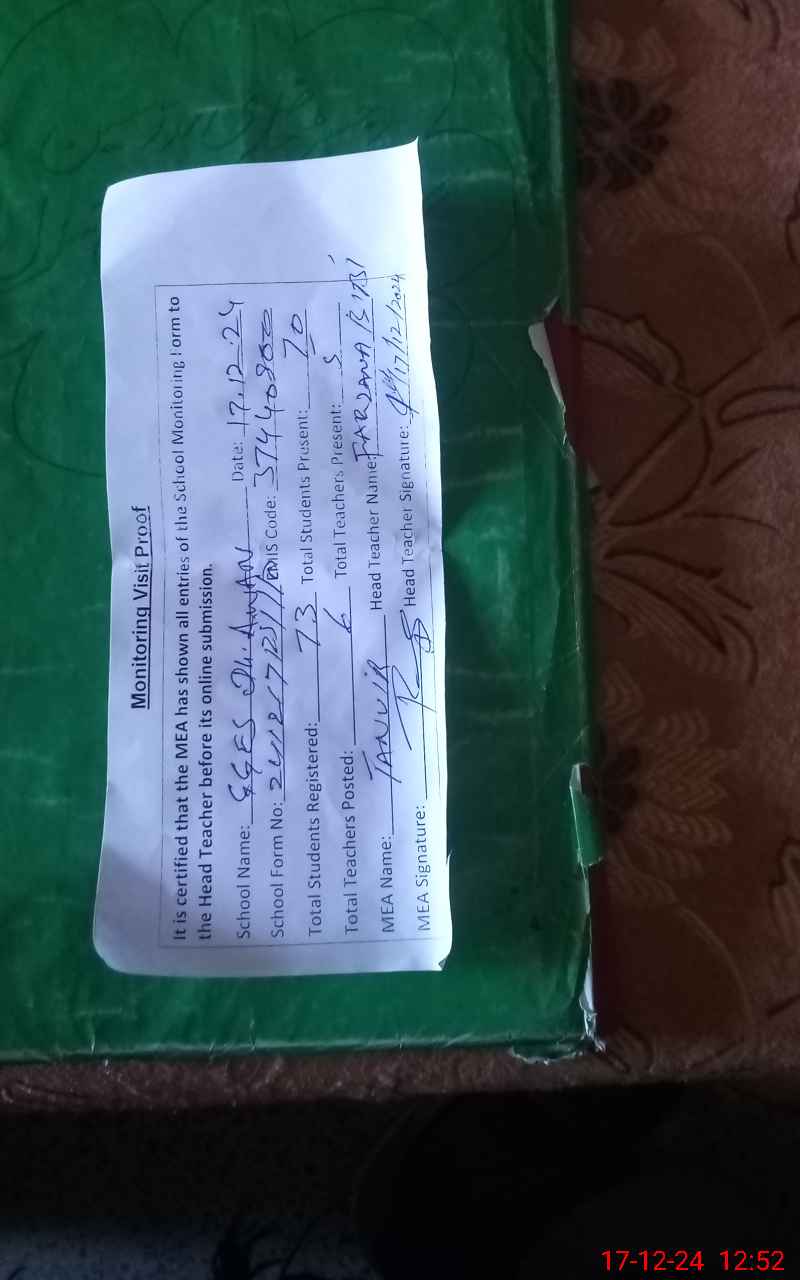 Monitoring Visit Proof
It is certified that the MEA has shown all entries of the School Monitoring Form to
the Head Teacher before its online submission.
School Name: GGES Date: 17.12.24
School Form No: EMIS Code:
Total Students Registered: 73 Total Students Present: 70
Total Teachers Posted: 6 Total Teachers Present: 5
MEA Name: TANVIR Head Teacher Name: FARZANA BIBI
MEA Signature: Head Teacher Signature: 17/12/2024
17-12-24 12:52